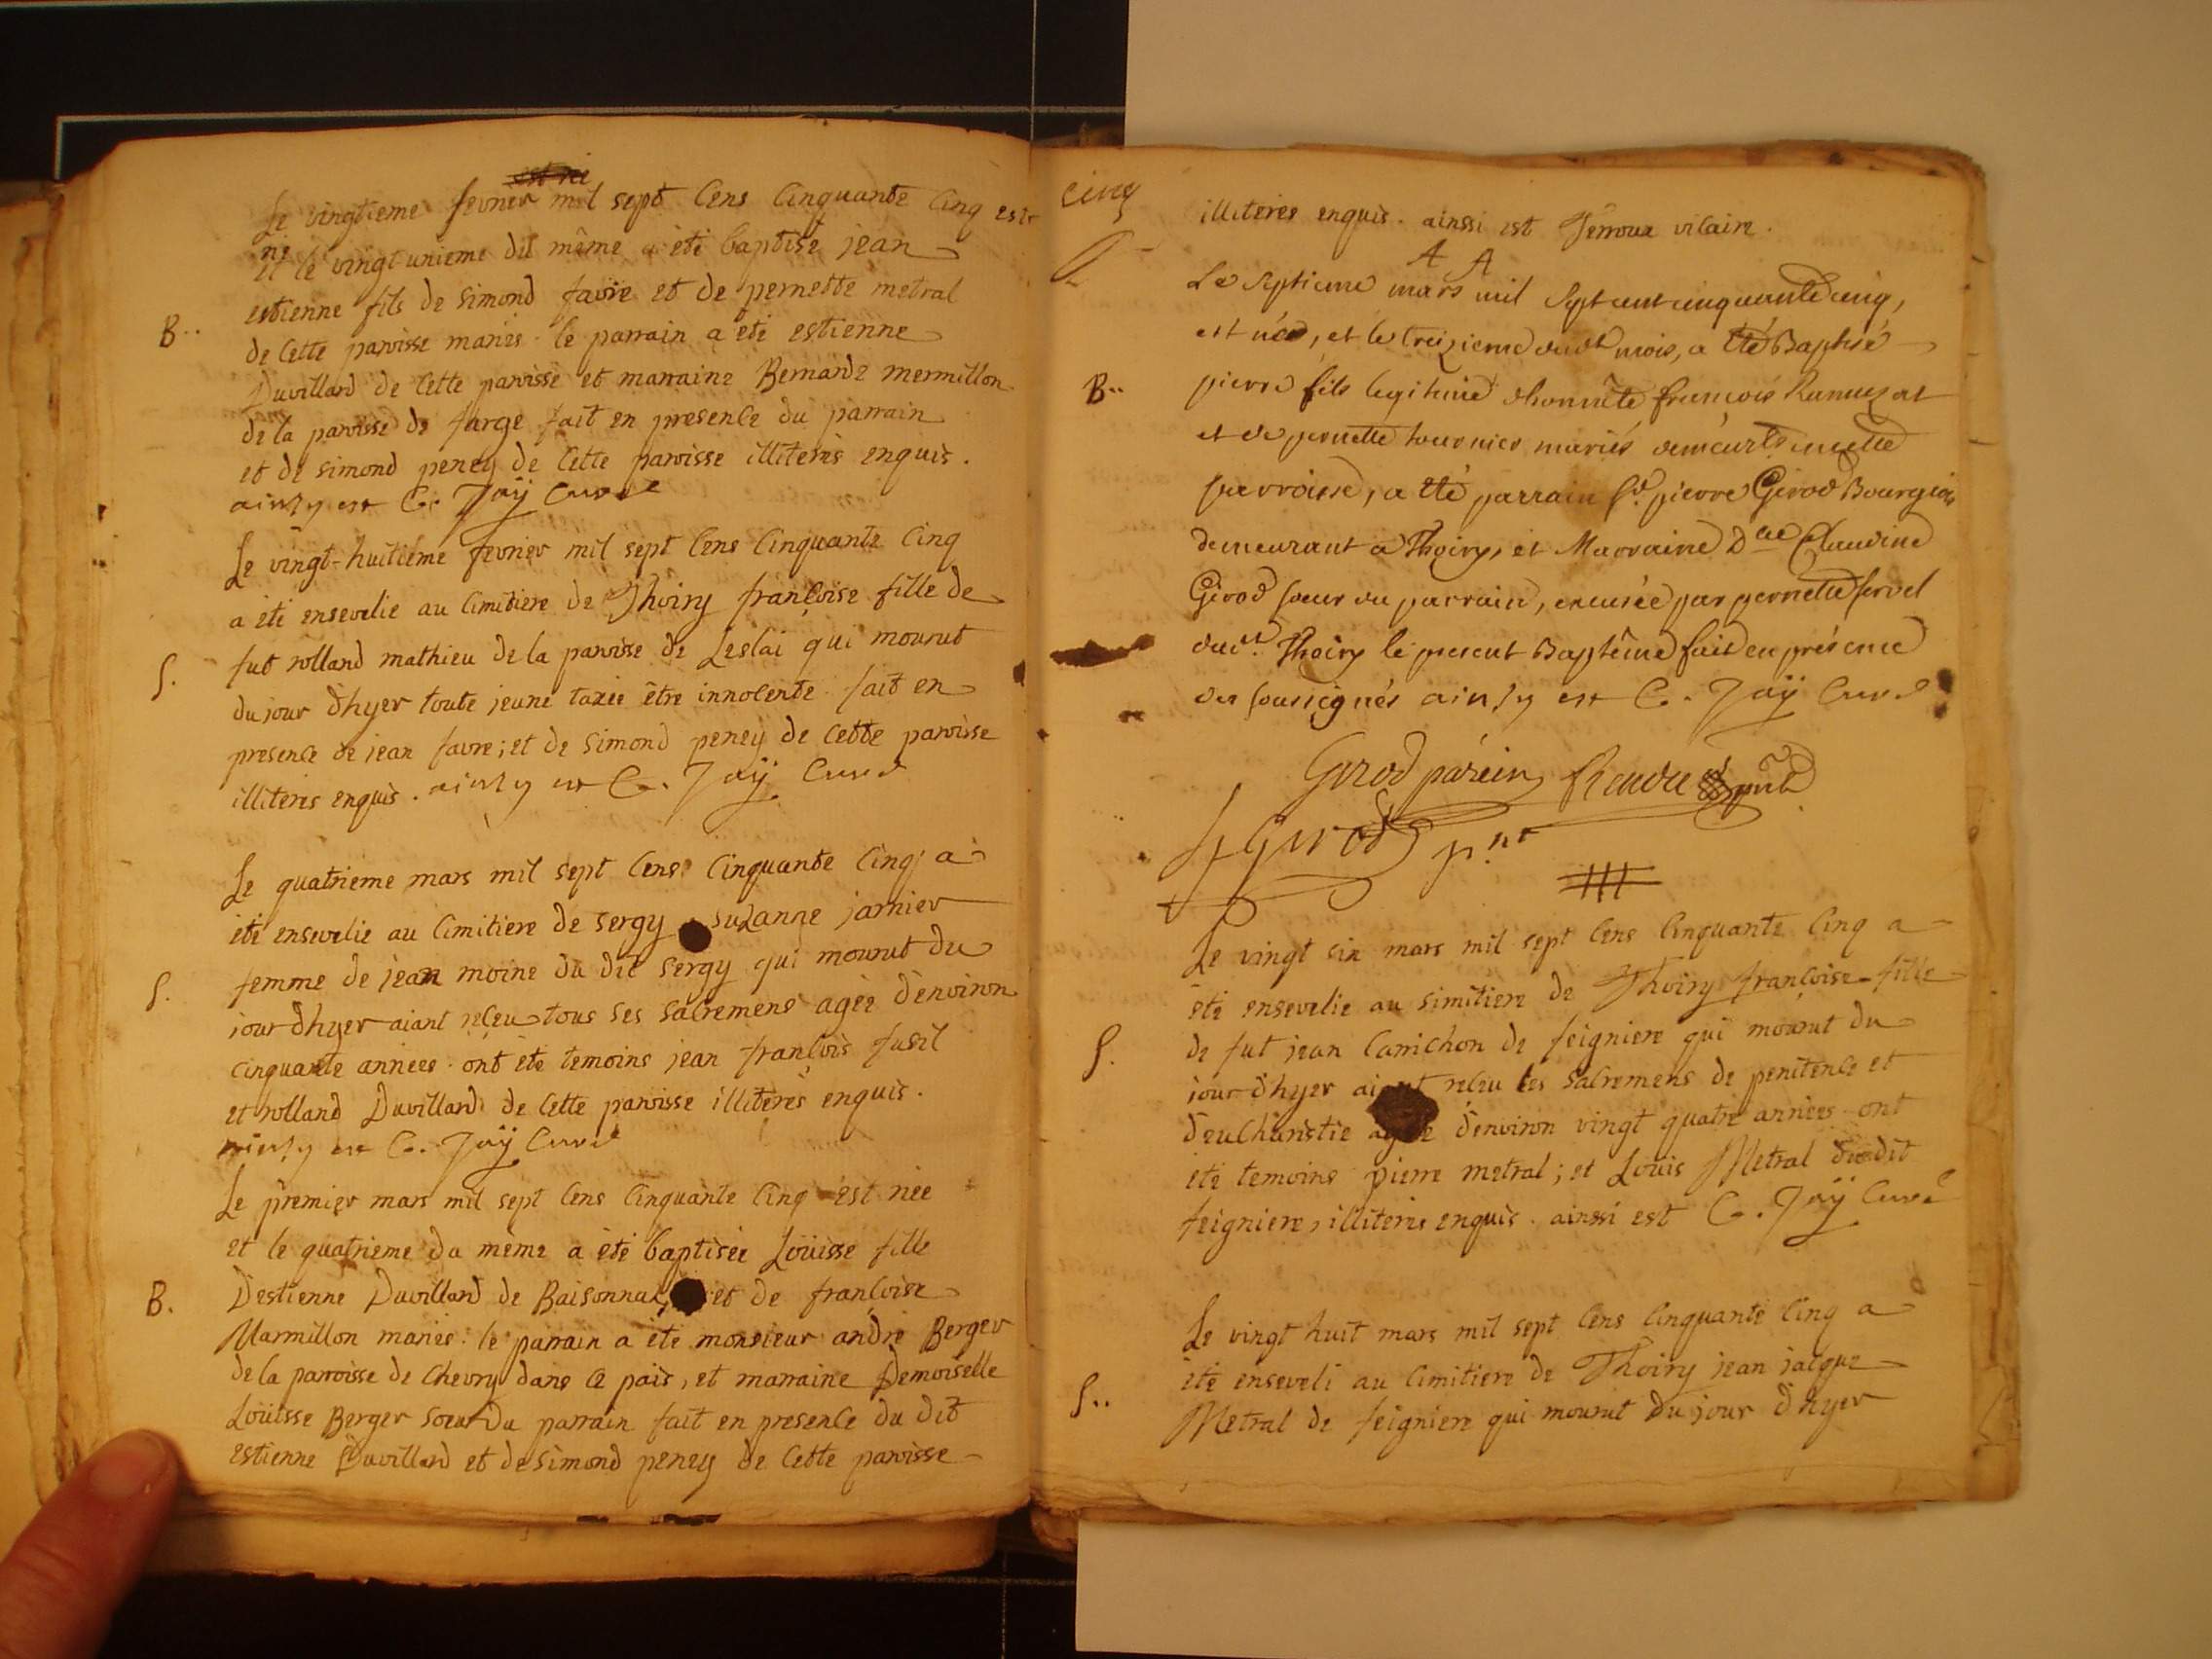 est né
Le vingtieme fevrier mil sept Cens Cinquante Cinq est
né
et le vingt unieme du même a été baptisé jean
estienne fils de simond favre et de pernette metral
B..
de Cette paroisse mariés. le parrain a été estienne
Duvillard de Cette paroisse et marraine Bernarde mermillon
de la paroisse de farge fait en presence du parrain
et de simond peney de Cette paroisse illiterés enquis.
ainsy est C. Jaÿ Curé
Le vingt-huitiême fevrier mil sept Cens Cinquante Cinq
a été ensevelie au Cimitiere de Thoiry françoise fille de
S.
fut rolland mathieu de la paroisse de
qui mourut
du jour d'hyer toute jeune taxée être innocente. fait en
presence de jean favre; et de simond peney de Cette paroisse
illiterés enquis. ainsy est C. Jaÿ Curé
Le quatrieme mars mil sept Cens Cinquante Cinq a
été ensevelie au Cimitiere de sergy suzanne jarnier
S.
femme de jean moine du dit sergy qui mourut du
jour d'hyer aiant réçeu tous ses sacremens agée d'environ
cinquante années. ont été temoins jean françois fusil
et rolland Duvillard de Cette paroisse illiterés enquis.
ainsy est C. Jaÿ Curé
Le premier mars mil sept Cens Cinquante Cinq est née
et le quatrieme du même a été baptisée Loüisse fille
B.
D'estienne Duvillard de Baisonnax et de françoise
Marmillon mariés. le parrain a été monsieur andré Berger
de la parroisse de Chevry dans Ce païs, et marraine Demoiselle
Loüisse Berger soeur du parrain fait en presence du dit
estienne Duvillard et de simond peney de Cette paroisse
cinq
illiterés enquis. ainsi est vicaire.
A A
Le septieme mars mil sept cent cinquante cinq,
est née, et le treizieme dudt mois, a été Baptisé
B..
pierre fils legitime d'honnête francois Ramuzat
et de pernette tournier mariés demeurts en cette
parroisse, a été parrain Sr. pierre Girod Bourgeois
demeurant a Thoiry, et Marraine Dlle Claudine
Girod soeur du parrain, excusée par pernette
dudt. Thoiry le present Baptême fait en présence
des soussignés ainsy est C. Jaÿ Curé
Girod parein
Girod pnt
Le vingt six mars mil sept Cens Cinquante Cinq a
été ensevelie au simitiere de Thoiry françoise fille
S.
de fut jean Carrichon de feigniere qui mourut du
jour d'hyer aiant réçeu les sacremens de penitence et
d'eucharistie agée d'environ vingt quatre années ont
été temoins pierre metral; et Loüis Metral du dit
feigniere, illiterés enquis. ainssi est C. Jaÿ Curé
Le vingt huit mars mil sept Cens Cinquante Cinq a
été enseveli au Cimitiere de Thoiry jean jacque
S..
Metral de feigniere qui mourut du jour d'hyer